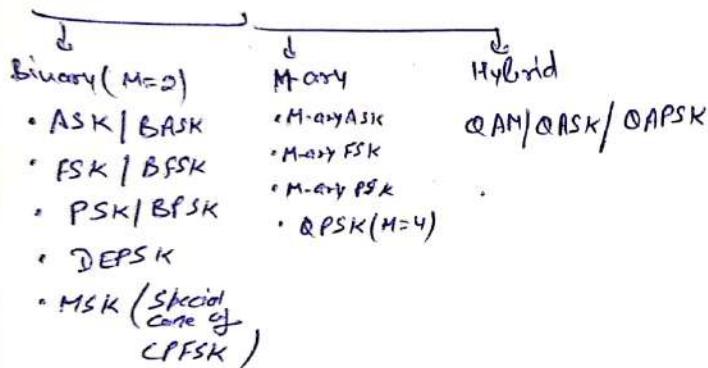 Binary (M=2)
• ASK / BASK
• FSK / BFSK
• PSK / BPSK
• DEPSK
• MSK (Special
case of
CPFSK)
M-ary
• M-ary ASK
• M-ary FSK
• M-ary PSK
• QPSK (M=4)
Hybrid
QAM/QASK/QAPSK